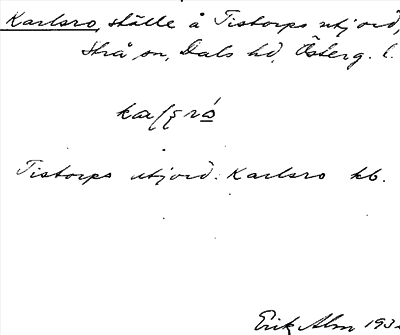 Karlsro, ställe å Tistorps utjord,
Strå sn, Dals hd, Österg. l.
Tistorps utjord: Karlsro kb.
Erik Alm 193